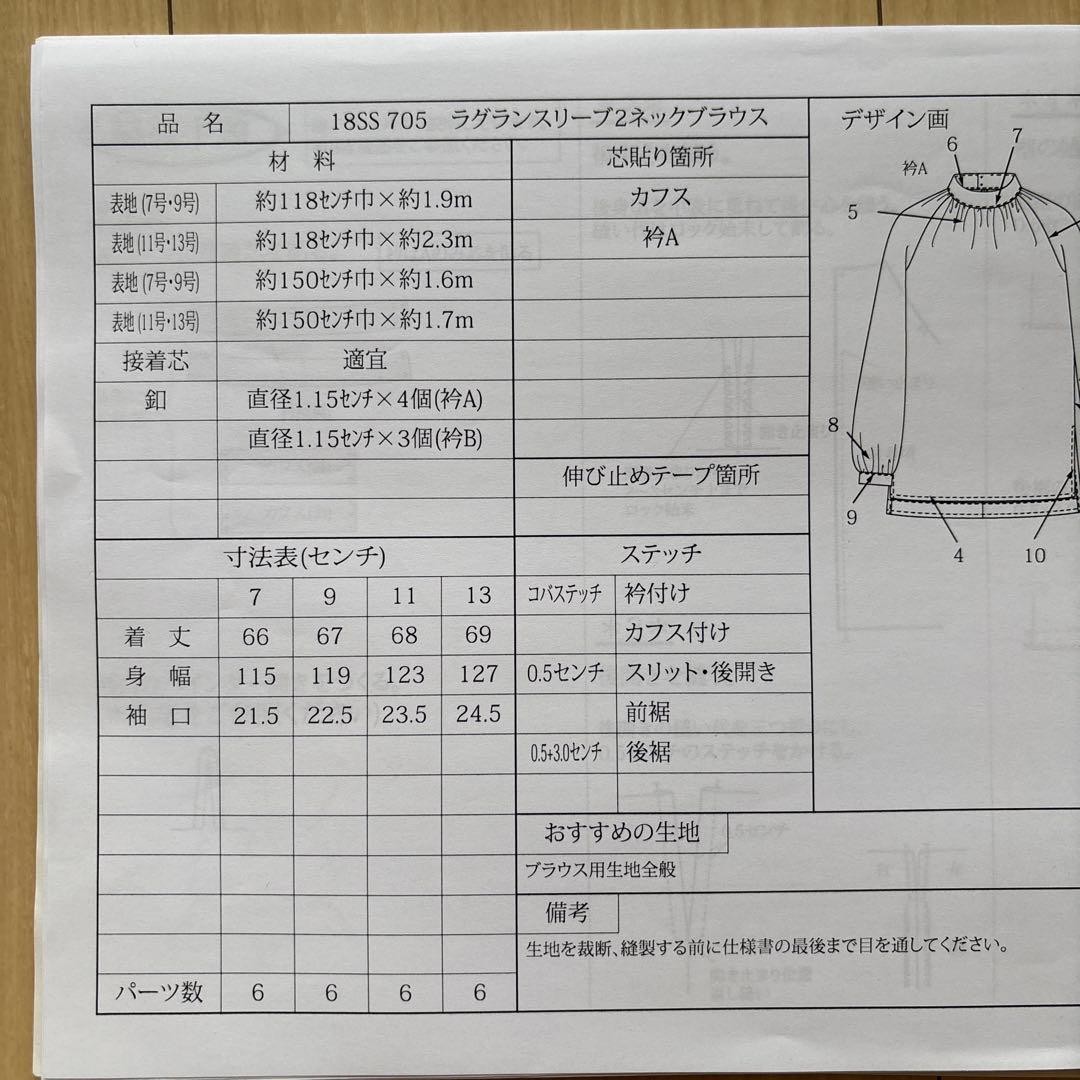 品 名 18SS 705 ラグランスリーブ2ネックブラウス
材 料
表地(7号・9号) 約118センチ巾×約1.9m
表地(11号・13号) 約118センチ巾×約2.3m
表地(7号・9号) 約150センチ巾×約1.6m
表地(11号・13号) 約150センチ巾×約1.7m
接着芯 適宜
釦 直径1.15センチ×4個(衿A)
直径1.15センチ×3個(衿B)
芯貼り箇所
カフス
衿A
伸び止めテープ箇所
デザイン画
衿A
6
7
5
8
9
4
10
寸法表(センチ)
7 9 11 13
着 丈 66 67 68 69
身 幅 115 119 123 127
袖 口 21.5 22.5 23.5 24.5
パーツ数 6 6 6 6
ステッチ
コバステッチ 衿付け
カフス付け
0.5センチ スリット・後開き
前裾
0.5+3.0センチ 後裾
おすすめの生地
ブラウス用生地全般
備考
生地を裁断、縫製する前に仕様書の最後まで目を通してください。